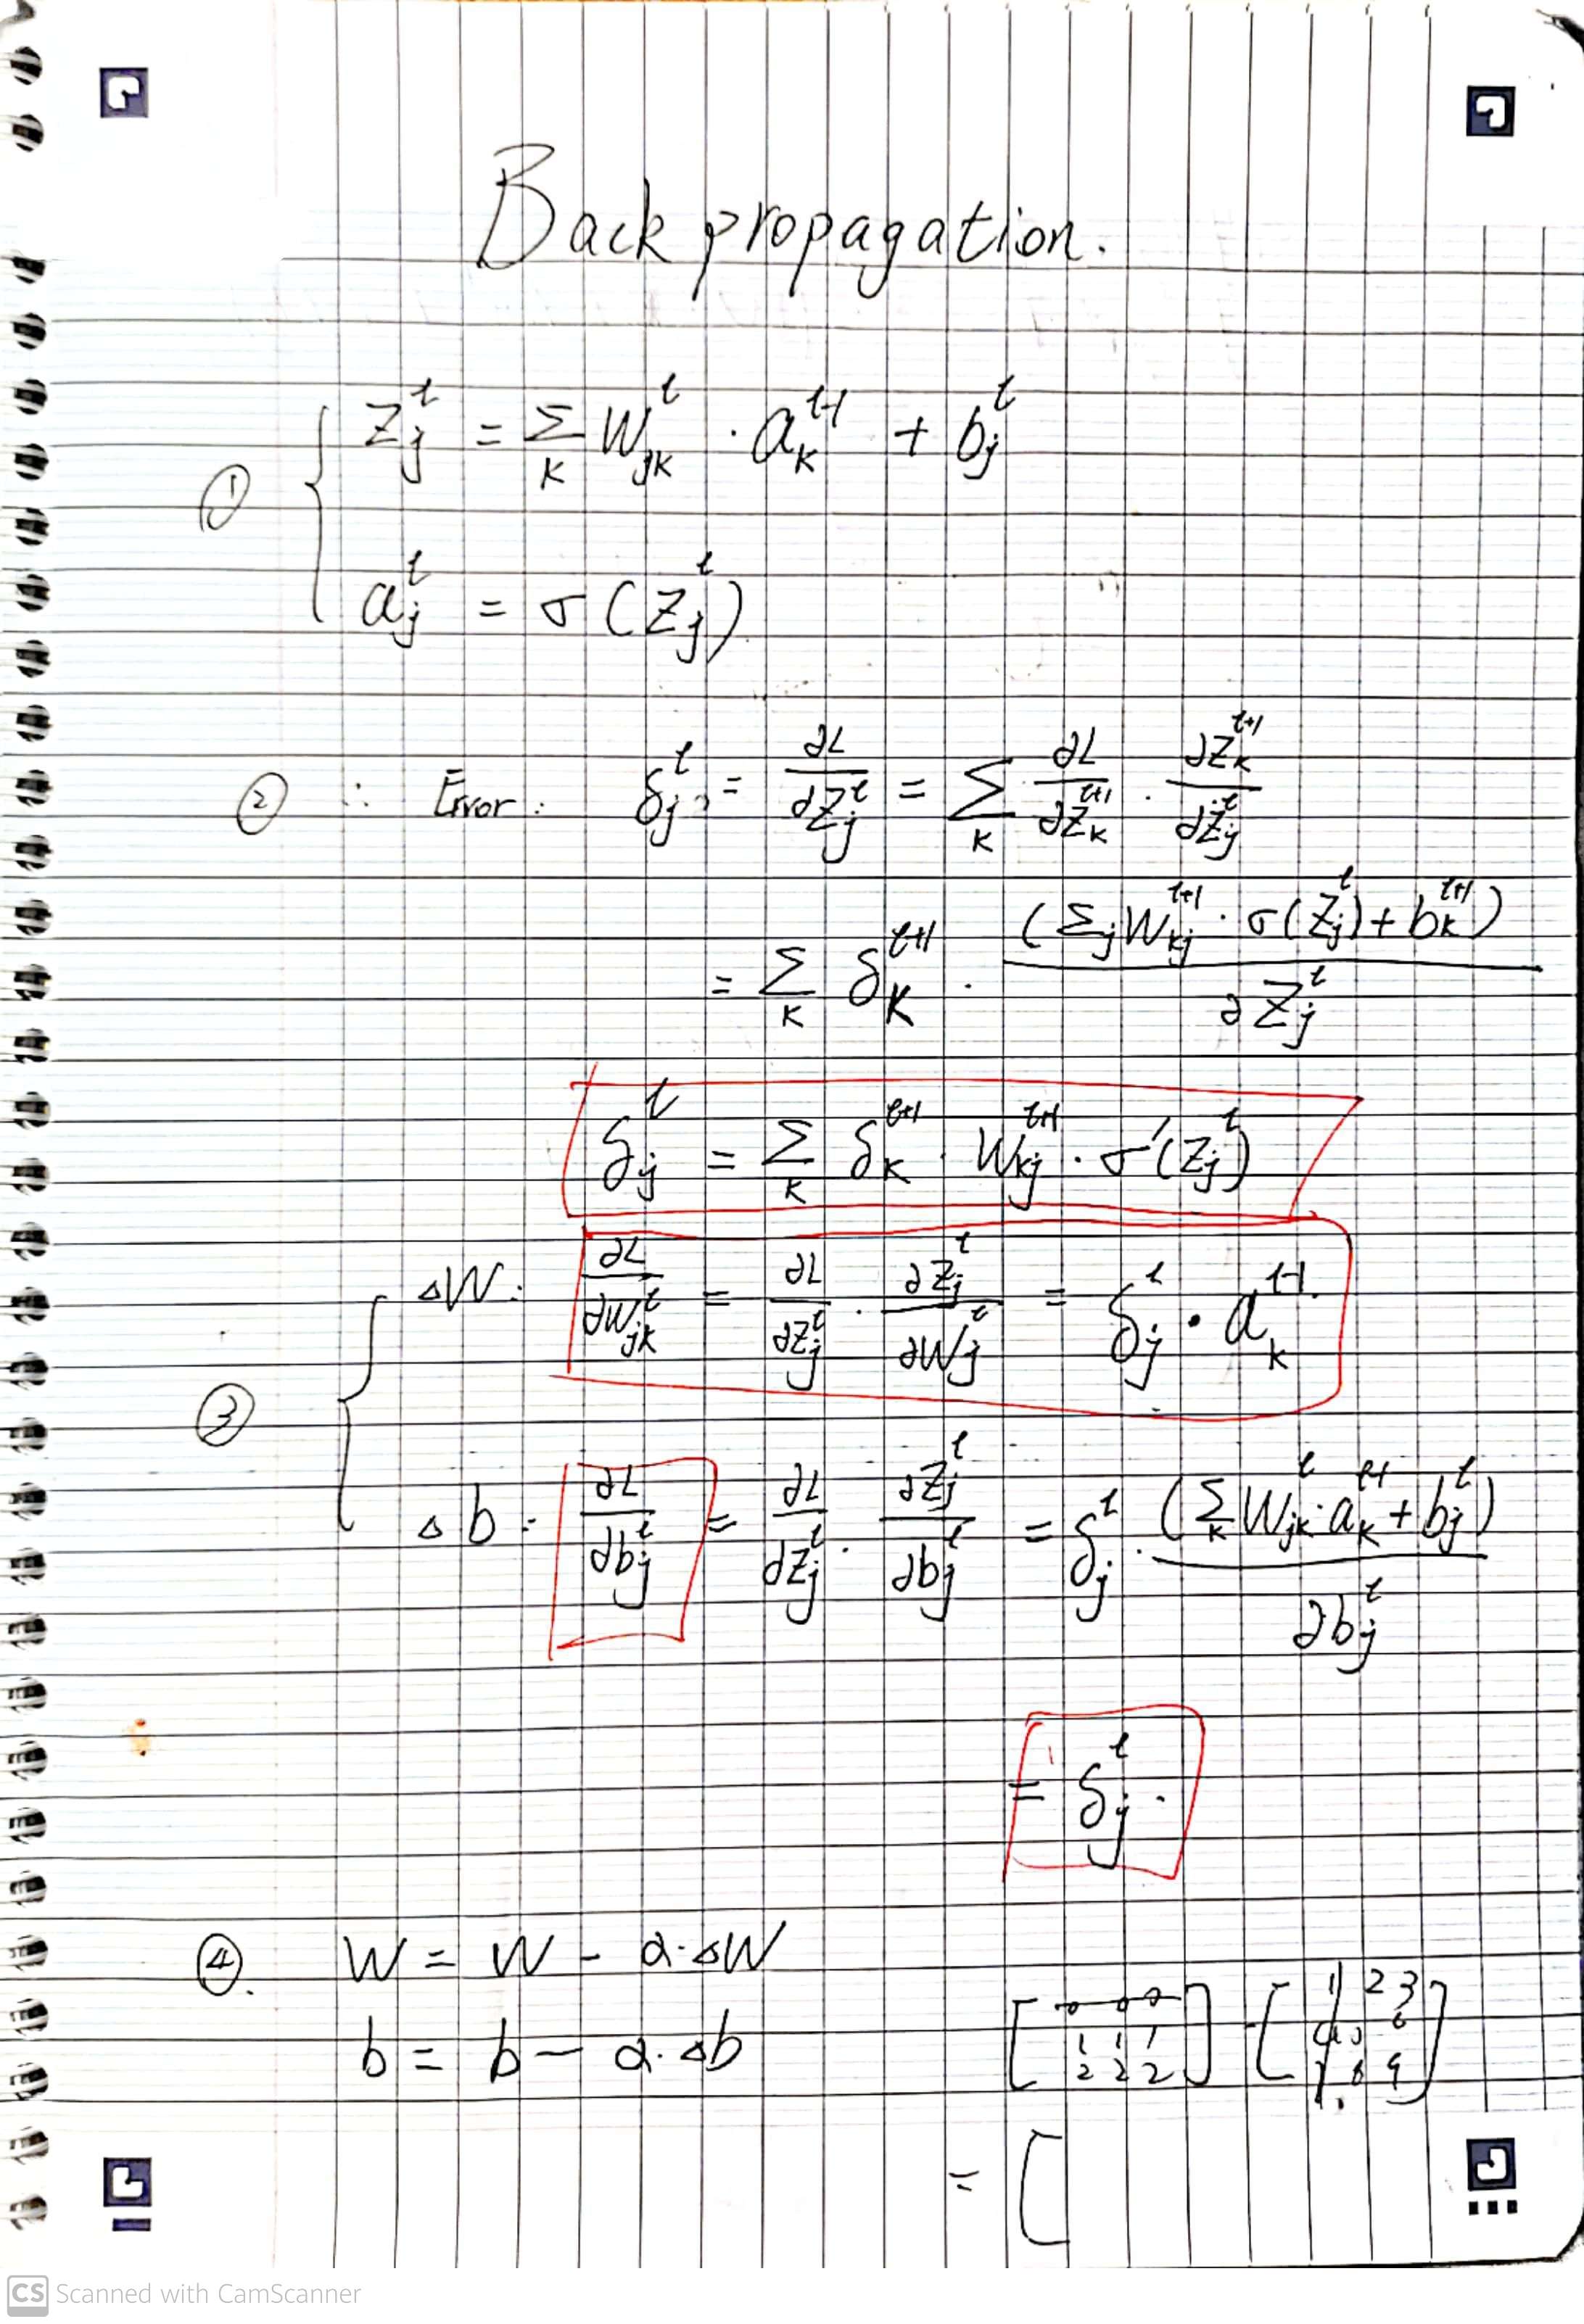 Back propagation.
① { z_j^l = Σ_k W_jk^l · a_k^{l-1} + b_j^l
a_j^l = σ(z_j^l)
② ∴ Error: δ_j^l = ∂L/∂z_j^l = Σ_k ∂L/∂z_k^{l+1} · ∂z_k^{l+1}/∂z_j^l
= Σ_k δ_k^{l+1} · (Σ_j W_kj^{l+1} · σ(z_j^l) + b_k^{l+1})/∂z_j^l
δ_j^l = Σ_k δ_k^{l+1} · W_kj^{l+1} · σ'(z_j^l)
③ { △W: ∂L/∂W_jk^l = ∂L/∂z_j^l · ∂z_j^l/∂W_j^l = δ_j^l · a_k^{l-1}
△b: ∂L/∂b_j^l = ∂L/∂z_j^l · ∂z_j^l/∂b_j^l = δ_j^l · (Σ_k W_jk^l · a_k^{l-1} + b_j^l)/∂b_j^l
= δ_j^l.
④. W = W - α·△W
b = b - α·△b
[0 0 0
1 1 1
2 2 2] [1 2 3
6
8 9]
= [
CS Scanned with CamScanner